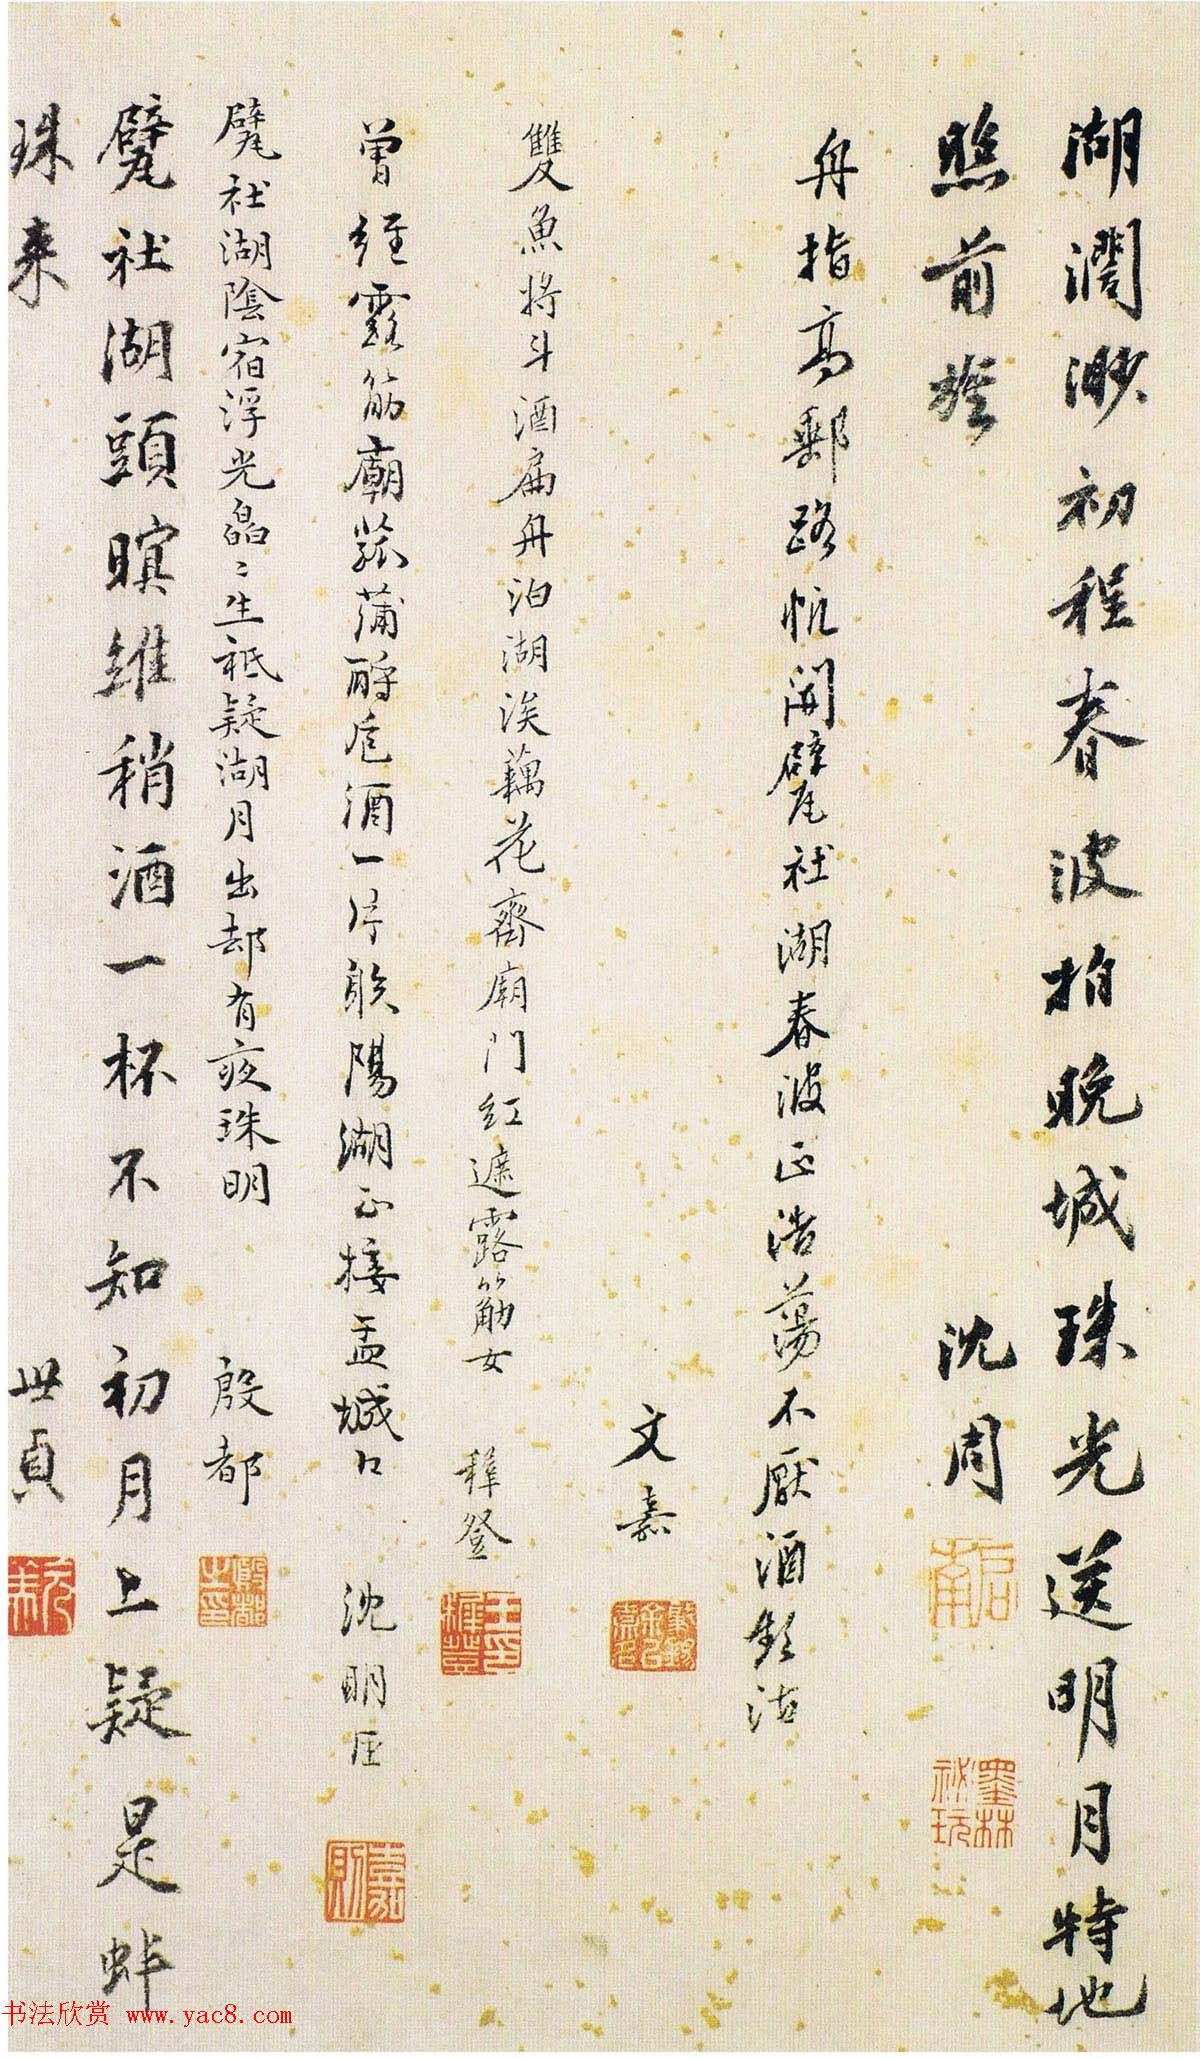 湖濶渺初程春波拍晚城珠光送明月特地
照前旌
沈周
舟指高郵路帆開甓社湖春波正浩蕩不厭酒頻沽
文嘉
雙魚將斗酒扁舟泊湖涘藕花齊廟門紅遮露筋女
穉登
曾經露筋廟菰蒲酹卮酒一片夕陽湖正接盂城口
沈明臣
甓社湖陰宿浮光皛〻生祗疑湖月出却有夜珠明
殷都
甓社湖頭暝維稍酒一杯不知初月上疑是蚌
珠来
世貞
墨林
祕玩
王穉登印
殷都之印
嘉則
书法欣赏 www.yac8.com